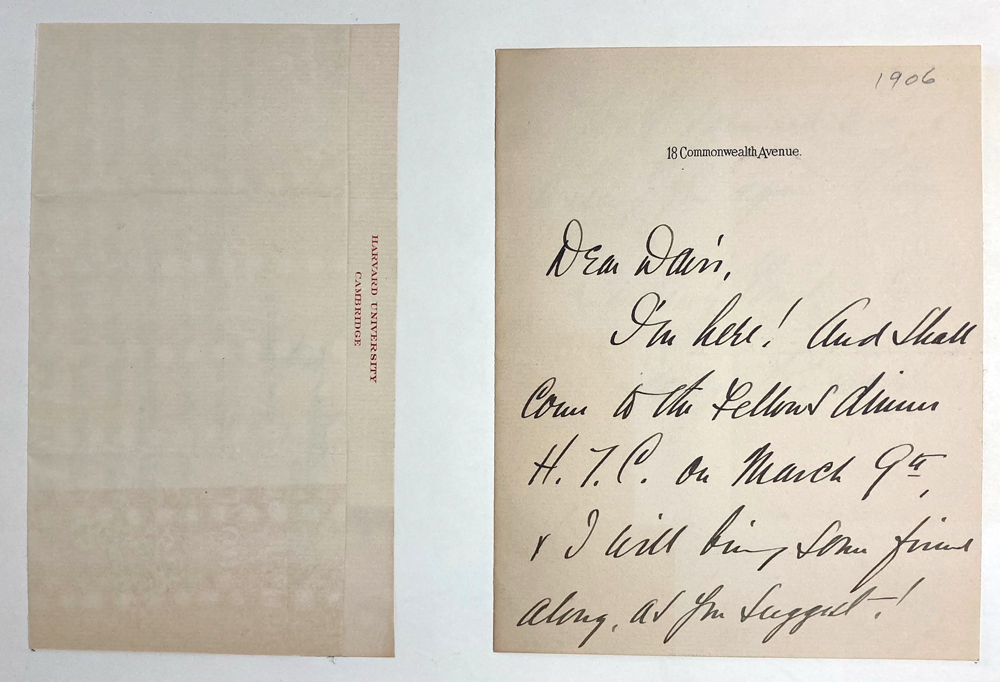 HARVARD UNIVERSITY
CAMBRIDGE
1906
18 Commonwealth Avenue.
Dear Davis,
I'm here! And shall
come to the Fellows dinner
H. T. C. on March 9th,
& I will bring some friend
along, as you suggest!